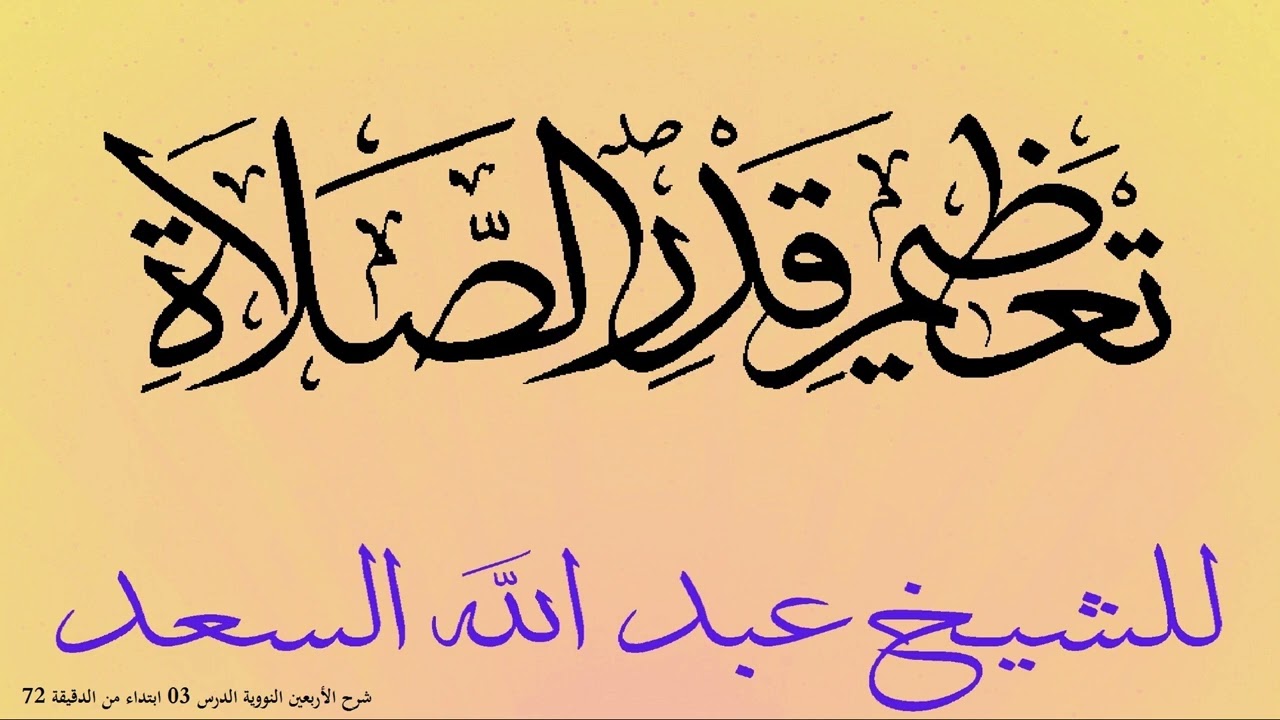 تعظيم قدر الصلاة
للشيخ عبد الله السعد
شرح الأربعين النووية الدرس 03 ابتداء من الدقيقة 72